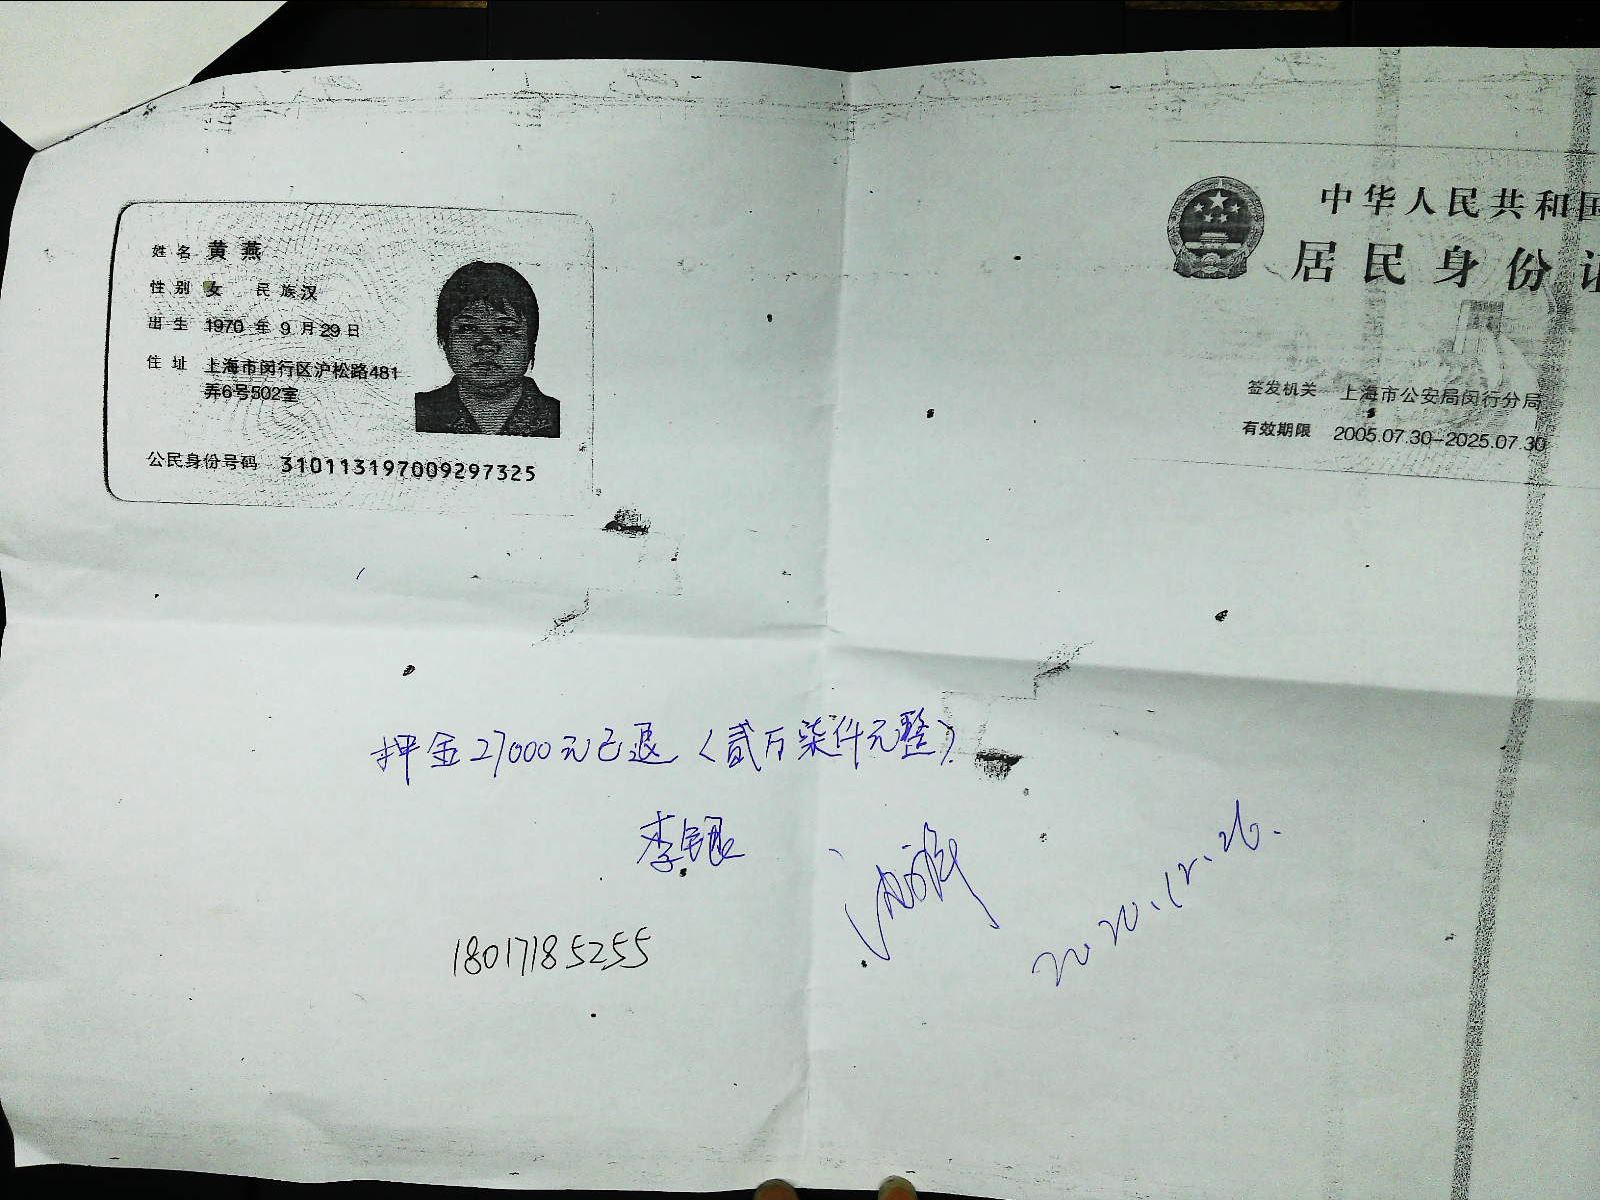 姓名 黄燕
性别 女 民族汉
出生 1970年9月29日
住址 上海市闵行区沪松路481
弄6号502室
公民身份号码 310113197009297325
中华人民共和国
居民身份证
签发机关 上海市公安局闵行分局
有效期限 2005.07.30-2025.07.30
押金27000元已退(贰万柒仟元整)
李银
2020.12.26.
18017185255